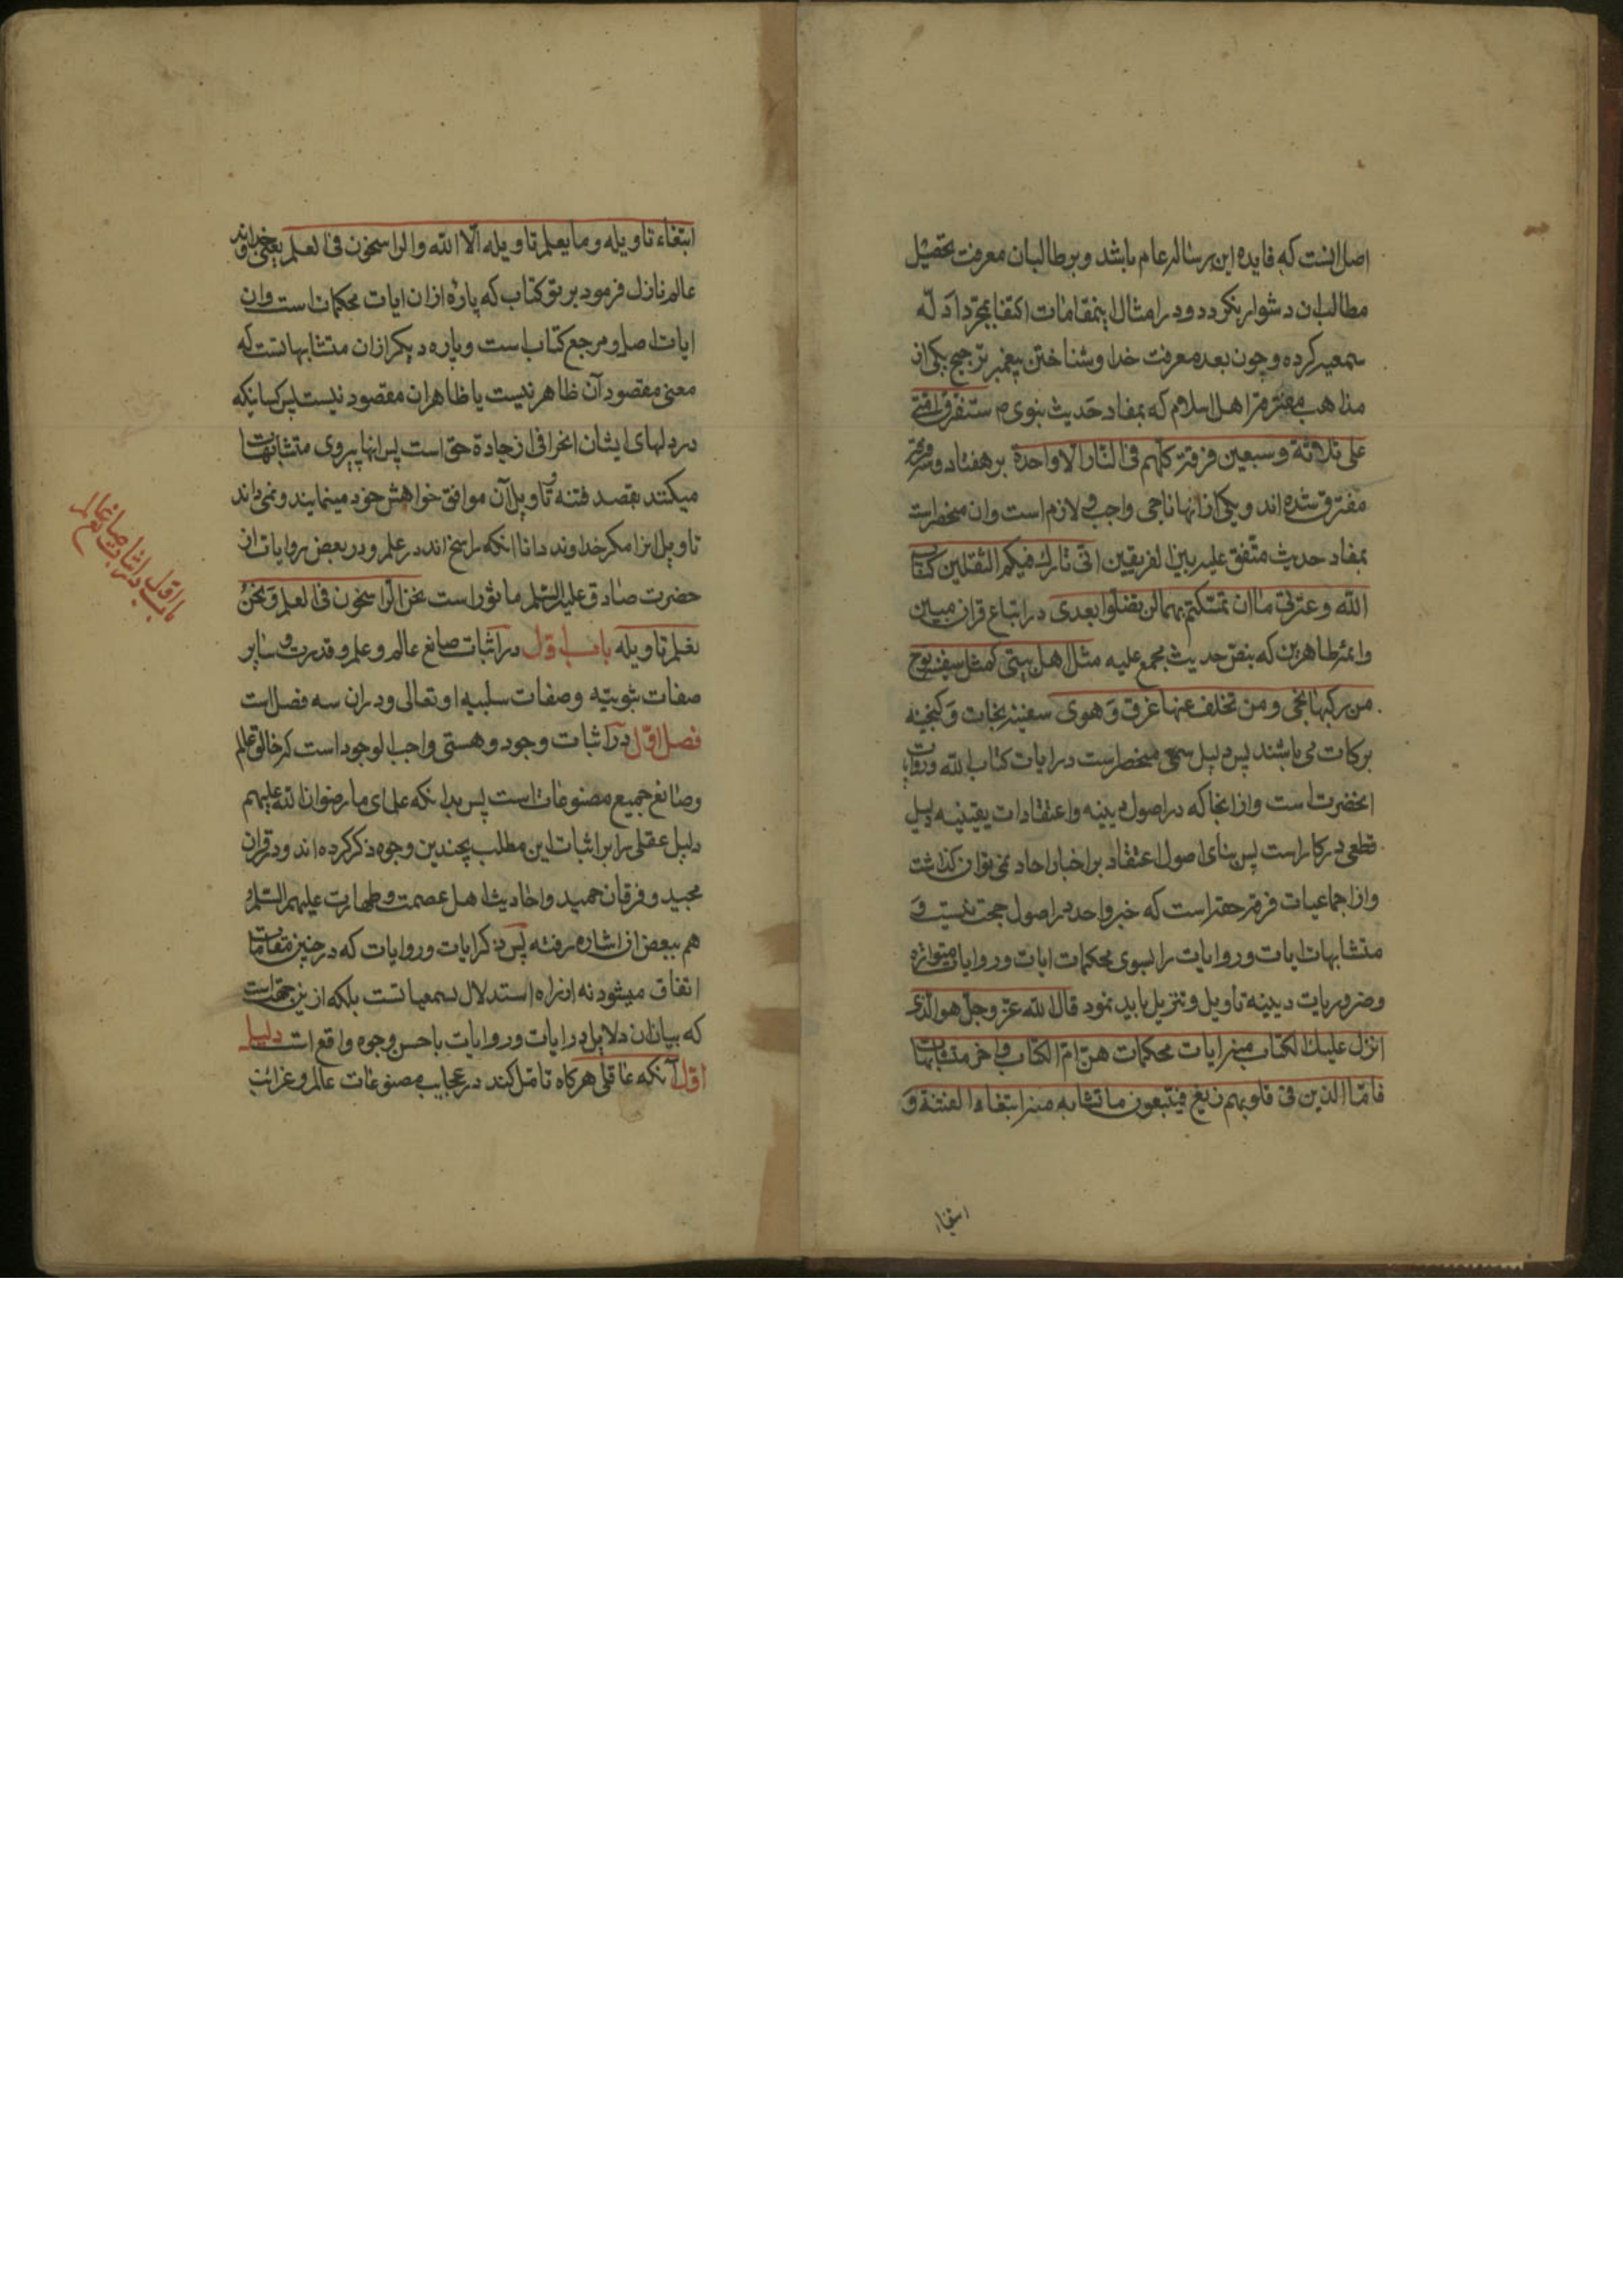 اصل انست که فایده این رساله عام باشد و بر طالبان معرفت تحصیل
مطالب ان دشوار نکردد و در امثال اینمقامات اکتفا بمجرد ادله
سمعیه کرده و چون بعد معرفت خدا و شناختن پیغمبر ترجیح یکی از
مذاهب مفترقه اهل اسلام که بمفاد حدیث نبوی ص ستفرق امتی
علی ثلاثة و سبعین فرقة کلهم فی النار الا واحدة بر هفتاد و سه فرقه
مفترق شده اند و یکی از انها ناجی واجب و لازم است وان منحصر است
بمفاد حدیث متفق علیه بین الفریقین انی تارك فیکم الثقلین کتاب
الله و عترتی ما ان تمسکتم بهما لن تضلوا بعدی در اتباع قران مبین
وائمه طاهرین که بنص حدیث مجمع علیه مثل اهل بیتی کمثل سفینه نوح
من رکبها نجی و من تخلف عنها غرق و هوی سفینه نجات و کنجینه
برکات می باشند پس دلیل سمعی منحصر است در ایات کتاب الله و روایات
انحضرت است و از انجا که در اصول دینیه و اعتقادات یقینیه دلیل
قطعی در کار است پس بنای اصول اعتقاد بر اخبار احاد نمی توان کذاشت
و از اجماعیات فرقه حقه است که خبر واحد در اصول حجت نیست و
متشابهات ایات و روایات را بسوی محکمات ایات و روایات متواتره
وضروریات دینیه تاویل و تنزیل باید نمود قال الله عز وجل هو الذی
انزل علیك الکتاب منه ایات محکمات هن ام الکتاب و اخر متشابهات
فاما الذین فی قلوبهم زیغ فیتبعون ما تشابه منه ابتغاء الفتنة و
ابتغاء
ابتغاء تاویله و ما یعلم تاویله الا الله والراسخون فی العلم یعنی خداوند
عالم نازل فرمود بر تو کتاب که پارهٔ از ان ایات محکمات است وان
ایات اصل و مرجع کتاب است و پاره دیکر از ان متشابهاتست که
معنی مقصود آن ظاهر نیست یا ظاهر ان مقصود نیست پس کسانیکه
در دلهای ایشان انحرافی از جادة حق است پس انها پیروی متشابهات
میکنند بقصد فتنه و تاویل آن موافق خواهش خود مینمایند و نمی داند
تاویل انرا مکر خداوند دانا انکه راسخ اند در علم و در بعض روایات از
حضرت صادق علیه السلم ماثور است نحن الراسخون فی العلم و نحن
نعلم تاویله باب اول در اثبات صانع عالم و علم و قدرت و سایر
صفات ثبوتیه و صفات سلبیه او تعالی و در ان سه فصل است
فصل اول در اثبات وجود و هستی واجب الوجود است که خالق عالم
وصانع جمیع مصنوعات است پس بدانکه علمای ما رضوان الله علیهم
دلیل عقلی را بر اثبات این مطلب بچندین وجوه ذکر کرده اند و در قران
مجید و فرقان حمید و احادیث اهل عصمت و طهارت علیهم السلم
هم ببعض از ان اشاره رفته پس ذکر ایات و روایات که در چنین مقامات
اتفاق میشود نه از راه استدلال بسمعیاتست بلکه از ین جهة است
که بیان ان دلایل در ایات و روایات باحسن وجوه واقع است دلیل
اول آنکه عاقل هرکاه تامل کند در عجایب مصنوعات عالم و غرائب
باب اول
در اثبات صانع عالم